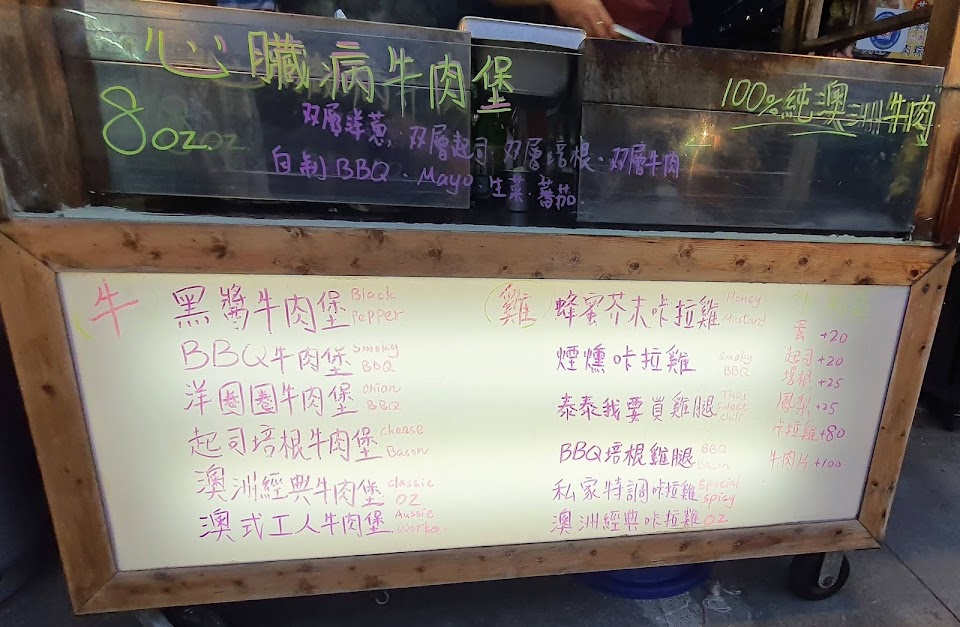 心臟病牛肉堡
8oz
100%純澳洲牛肉
双層洋蔥.双層起司.双層培根.双層牛肉
自制BBQ.Mayo 生菜.蕃茄
牛
黑醬牛肉堡 Black Pepper
BBQ牛肉堡 Smoky BBQ
洋圈圈牛肉堡 Onion BBQ
起司培根牛肉堡 cheese Bacon
澳洲經典牛肉堡 classic OZ
澳式工人牛肉堡 Aussie Works
雞
蜂蜜芥末咔拉雞 Honey Mustard
煙燻咔拉雞 smoky BBQ
泰泰我要買雞腿 Thai sweet chili
BBQ培根雞腿 BBQ Bacon
私家特調咔拉雞 Spacial Spicy
澳洲經典咔拉雞 OZ
蛋 +20
起司 +20
培根 +25
鳳梨 +25
咔拉雞 +80
牛肉片 +100